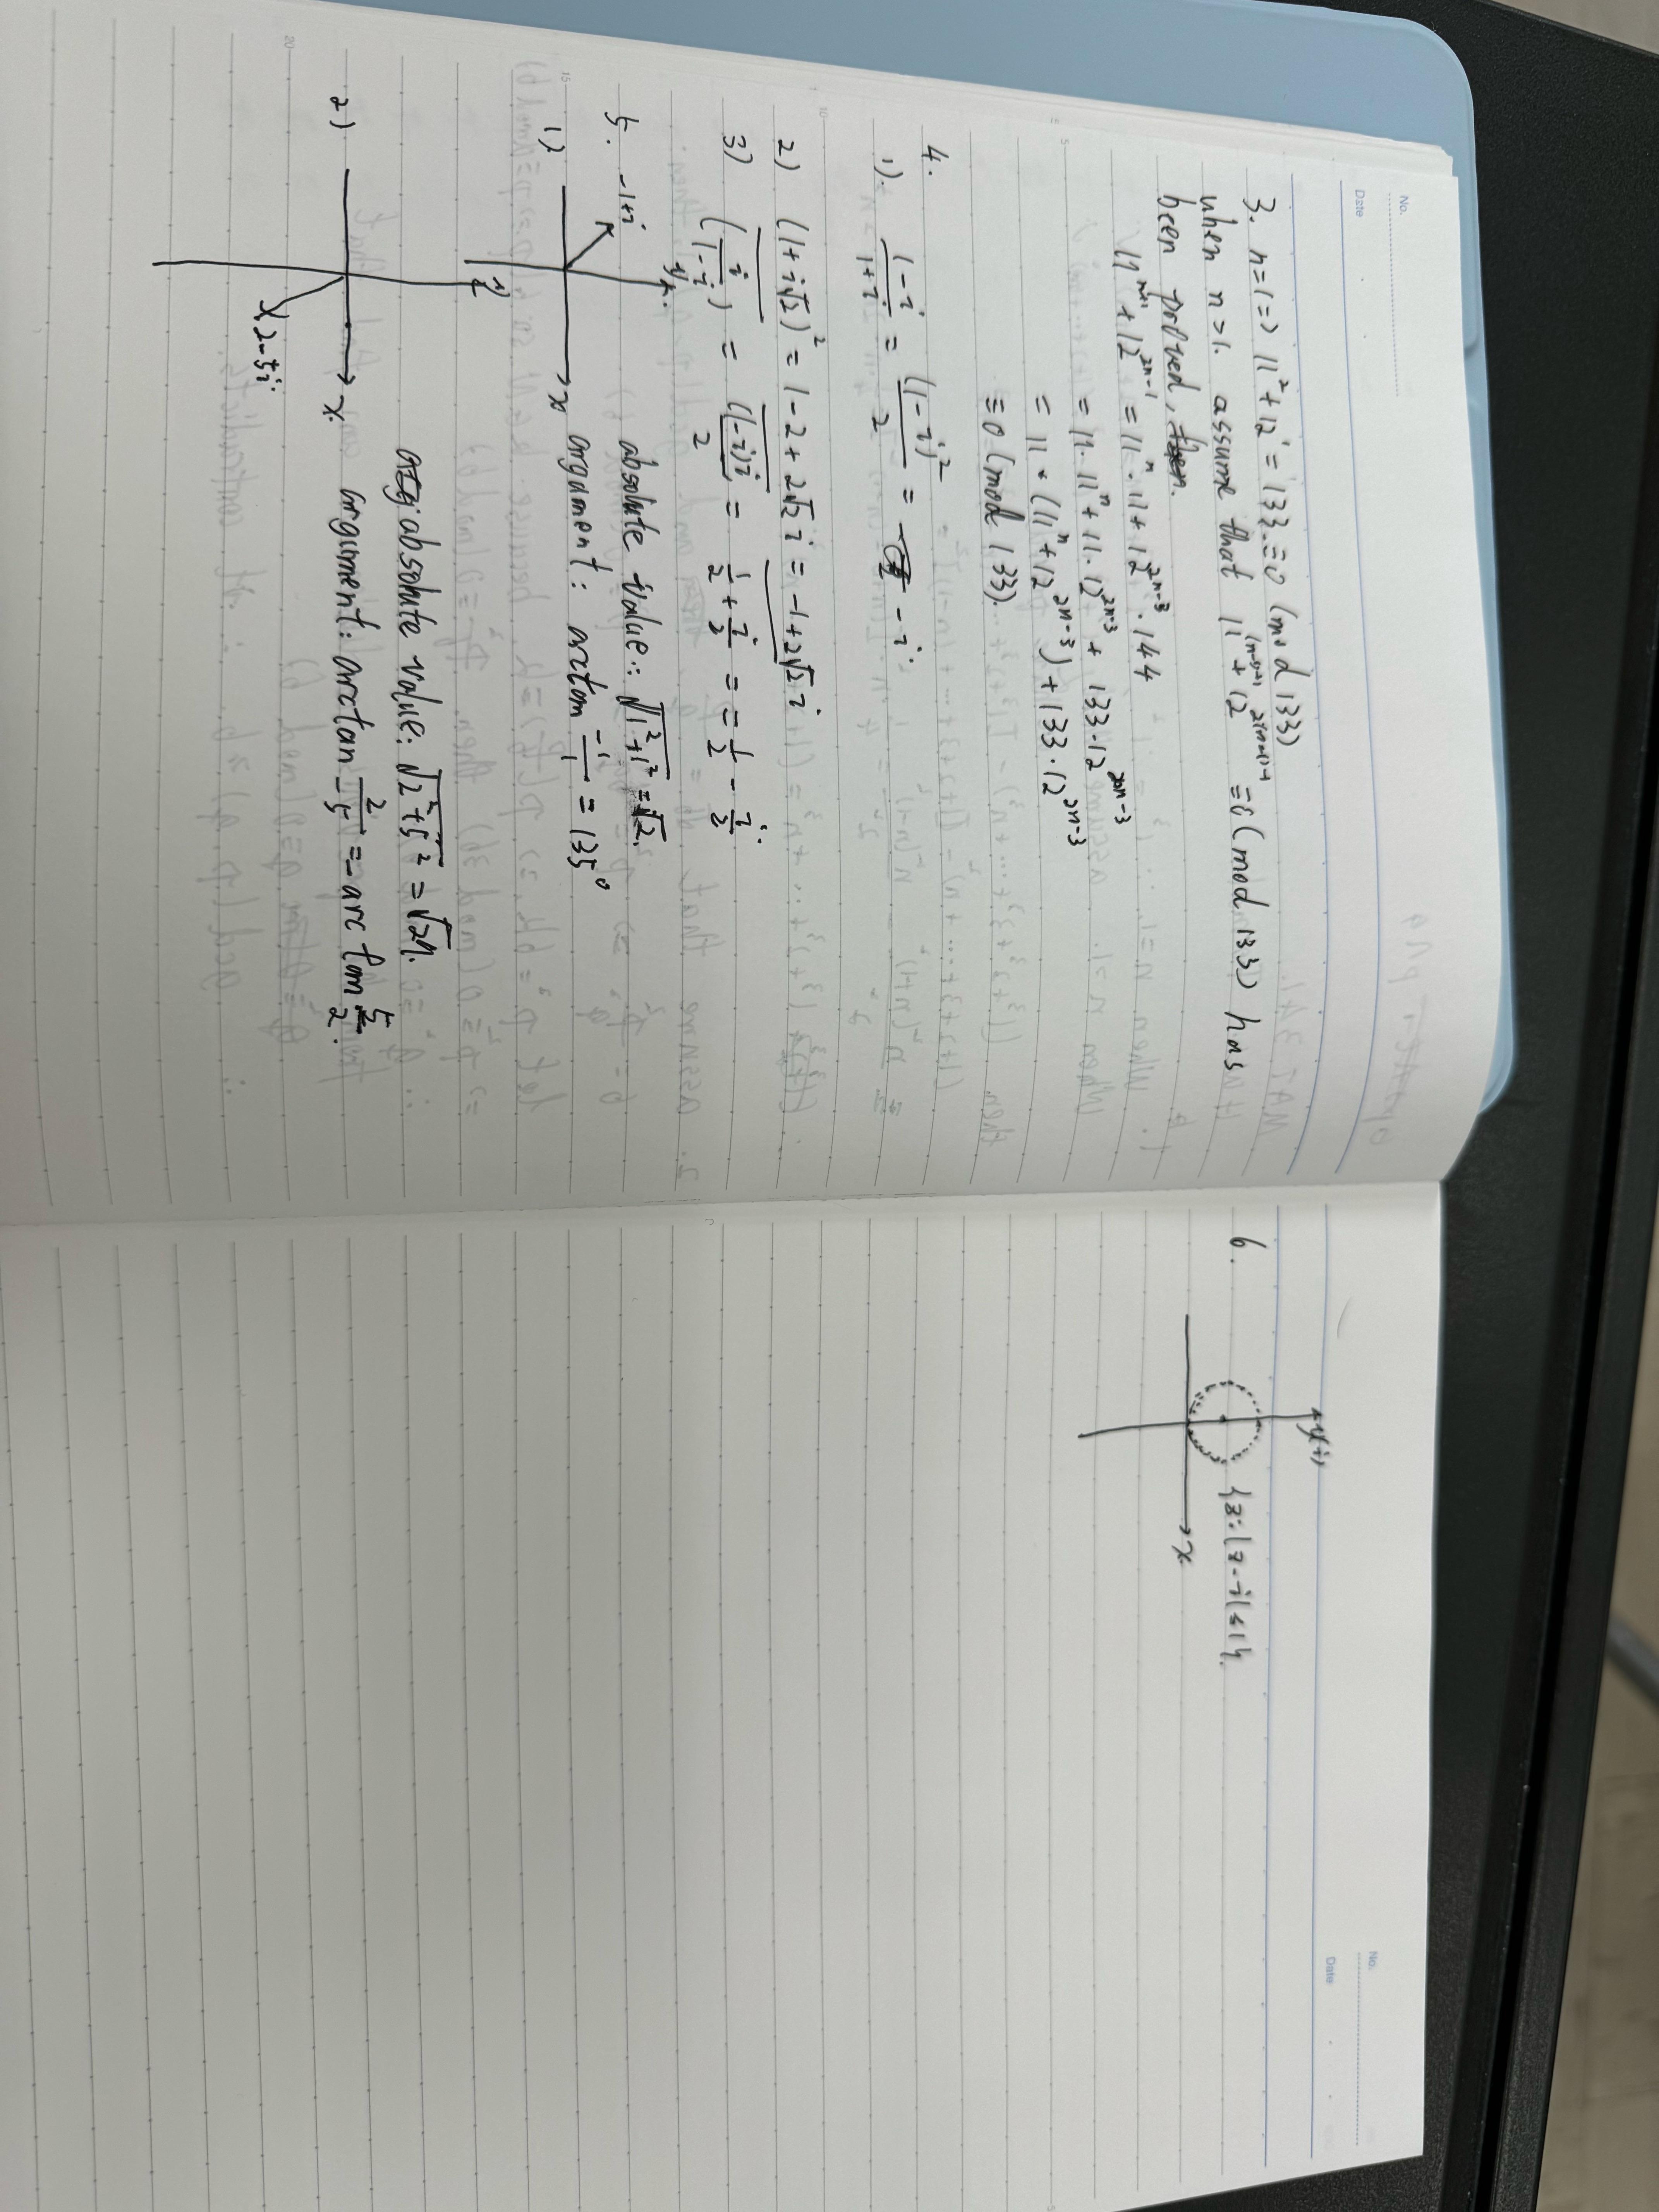 No.
Date
3. n=1 => 11²+12¹ = 133 ≡ 0 (mod 133)
when n>1. assume that 11^(n-1)+1 + 12^2(n-1)-1 ≡ 0 (mod 133) has
been proved,
11^n+1 + 12^2n-1 = 11^n · 11 + 12^2n-3 · 144
= 11 · 11^n + 11 · 12^2n-3 + 133 · 12^2n-3
= 11 × (11^n + 12^2n-3) + 133 · 12^2n-3
≡ 0 (mod 133).
4.
1). (1-i)/(1+i) = (1-i)²/2 = -i.
2) (1+i√2)² = 1-2+2√2i = -1+2√2i
3) (i/(1-i)) = ((1-i)i/2) = 1/2 + i/2 = = 1/2 - i/2.
5.
-1+i
absolute value: √(1²+1²) = √2.
1)
x
argument: arctan -1/1 = 135°
absolute value: √(2²+5²) = √29.
2)
x
argument: arctan 2/-5 = -arctan 5/2.
2-5i
5
10
15
20
No.
Date
6.
y(i)
{z: |z-i|≤1}.
x